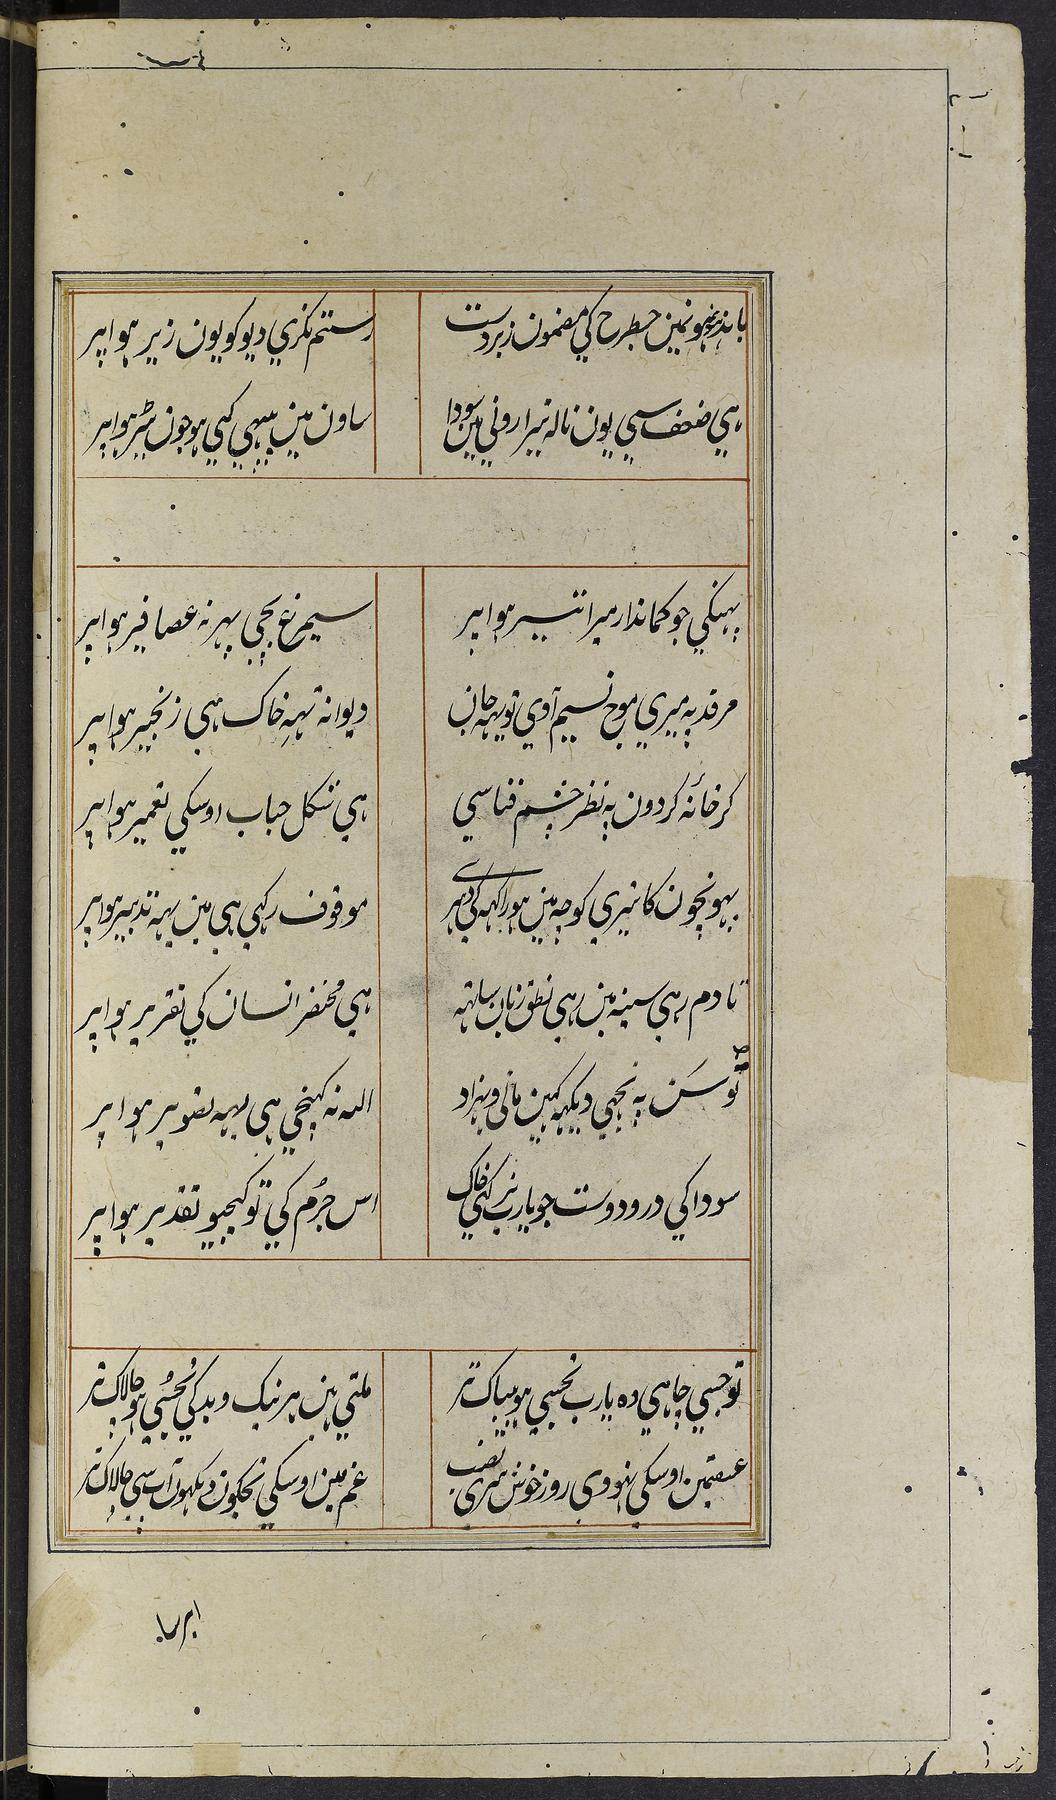 باندہونہونمین جسطرح کي مضمون زبردست
رستم نکري دیو کو یون زیر ہوا پر
ہي ضعف سي یون نالہ تیرا روني مین سودا
ساون مین پپیہي کي ہو جون ٹیر ہوا پر
پہینکي جو کماندار میرا تیر ہوا پر
سیمرغ بچي پہر نہ عصافیر ہوا پر
مرقد پہ میري موج نسیم آوي تو یہہ جان
دیوانہ تہہِ خاک ہي زنجیر ہوا پر
کر خانہ کردون پہ نظر چشم فنا سي
ہي شکل حباب اوسکي تعمیر ہوا پر
پہونچون کا تیري کوچہ مین ہو راکہہ کي ڈہیر
موقوف رکہي ہي مین یہہ تدبیر ہوا پر
تا دم رہي سینہ مین رہي نطق زبان ساتہہ
ہي مختصر انسان کي تقریر ہوا پر
توسَن پہ تجہي دیکہہ کہین مانی و بہزاد
اللہ نہ کہنچي ہي یہہ تصویر ہوا پر
سودا کي درو دوست جو یارب نہ کئي خاک
اس جُرم کي تو کیجیو تقدیر ہوا پر
تو جسي چاہي دہ یارب تجسي ہو بیباک تر
ملتي ہین ہر نیک و بد کي تُجسُي ہو چالاک تر
عشقمین اوسکي نہووي روز خوش تیری نصیب
غم مین اوسکي تجکون دیکہون آپ سي چالاک تر